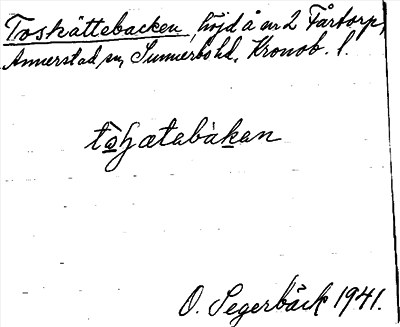 Toskättebacken, höjd å nr 2 Fårtorp,
Annerstad sn, Sunnerbo hd, Kronob. l.
tɷʒɷtabàkan
O. Segerbäck 1941.